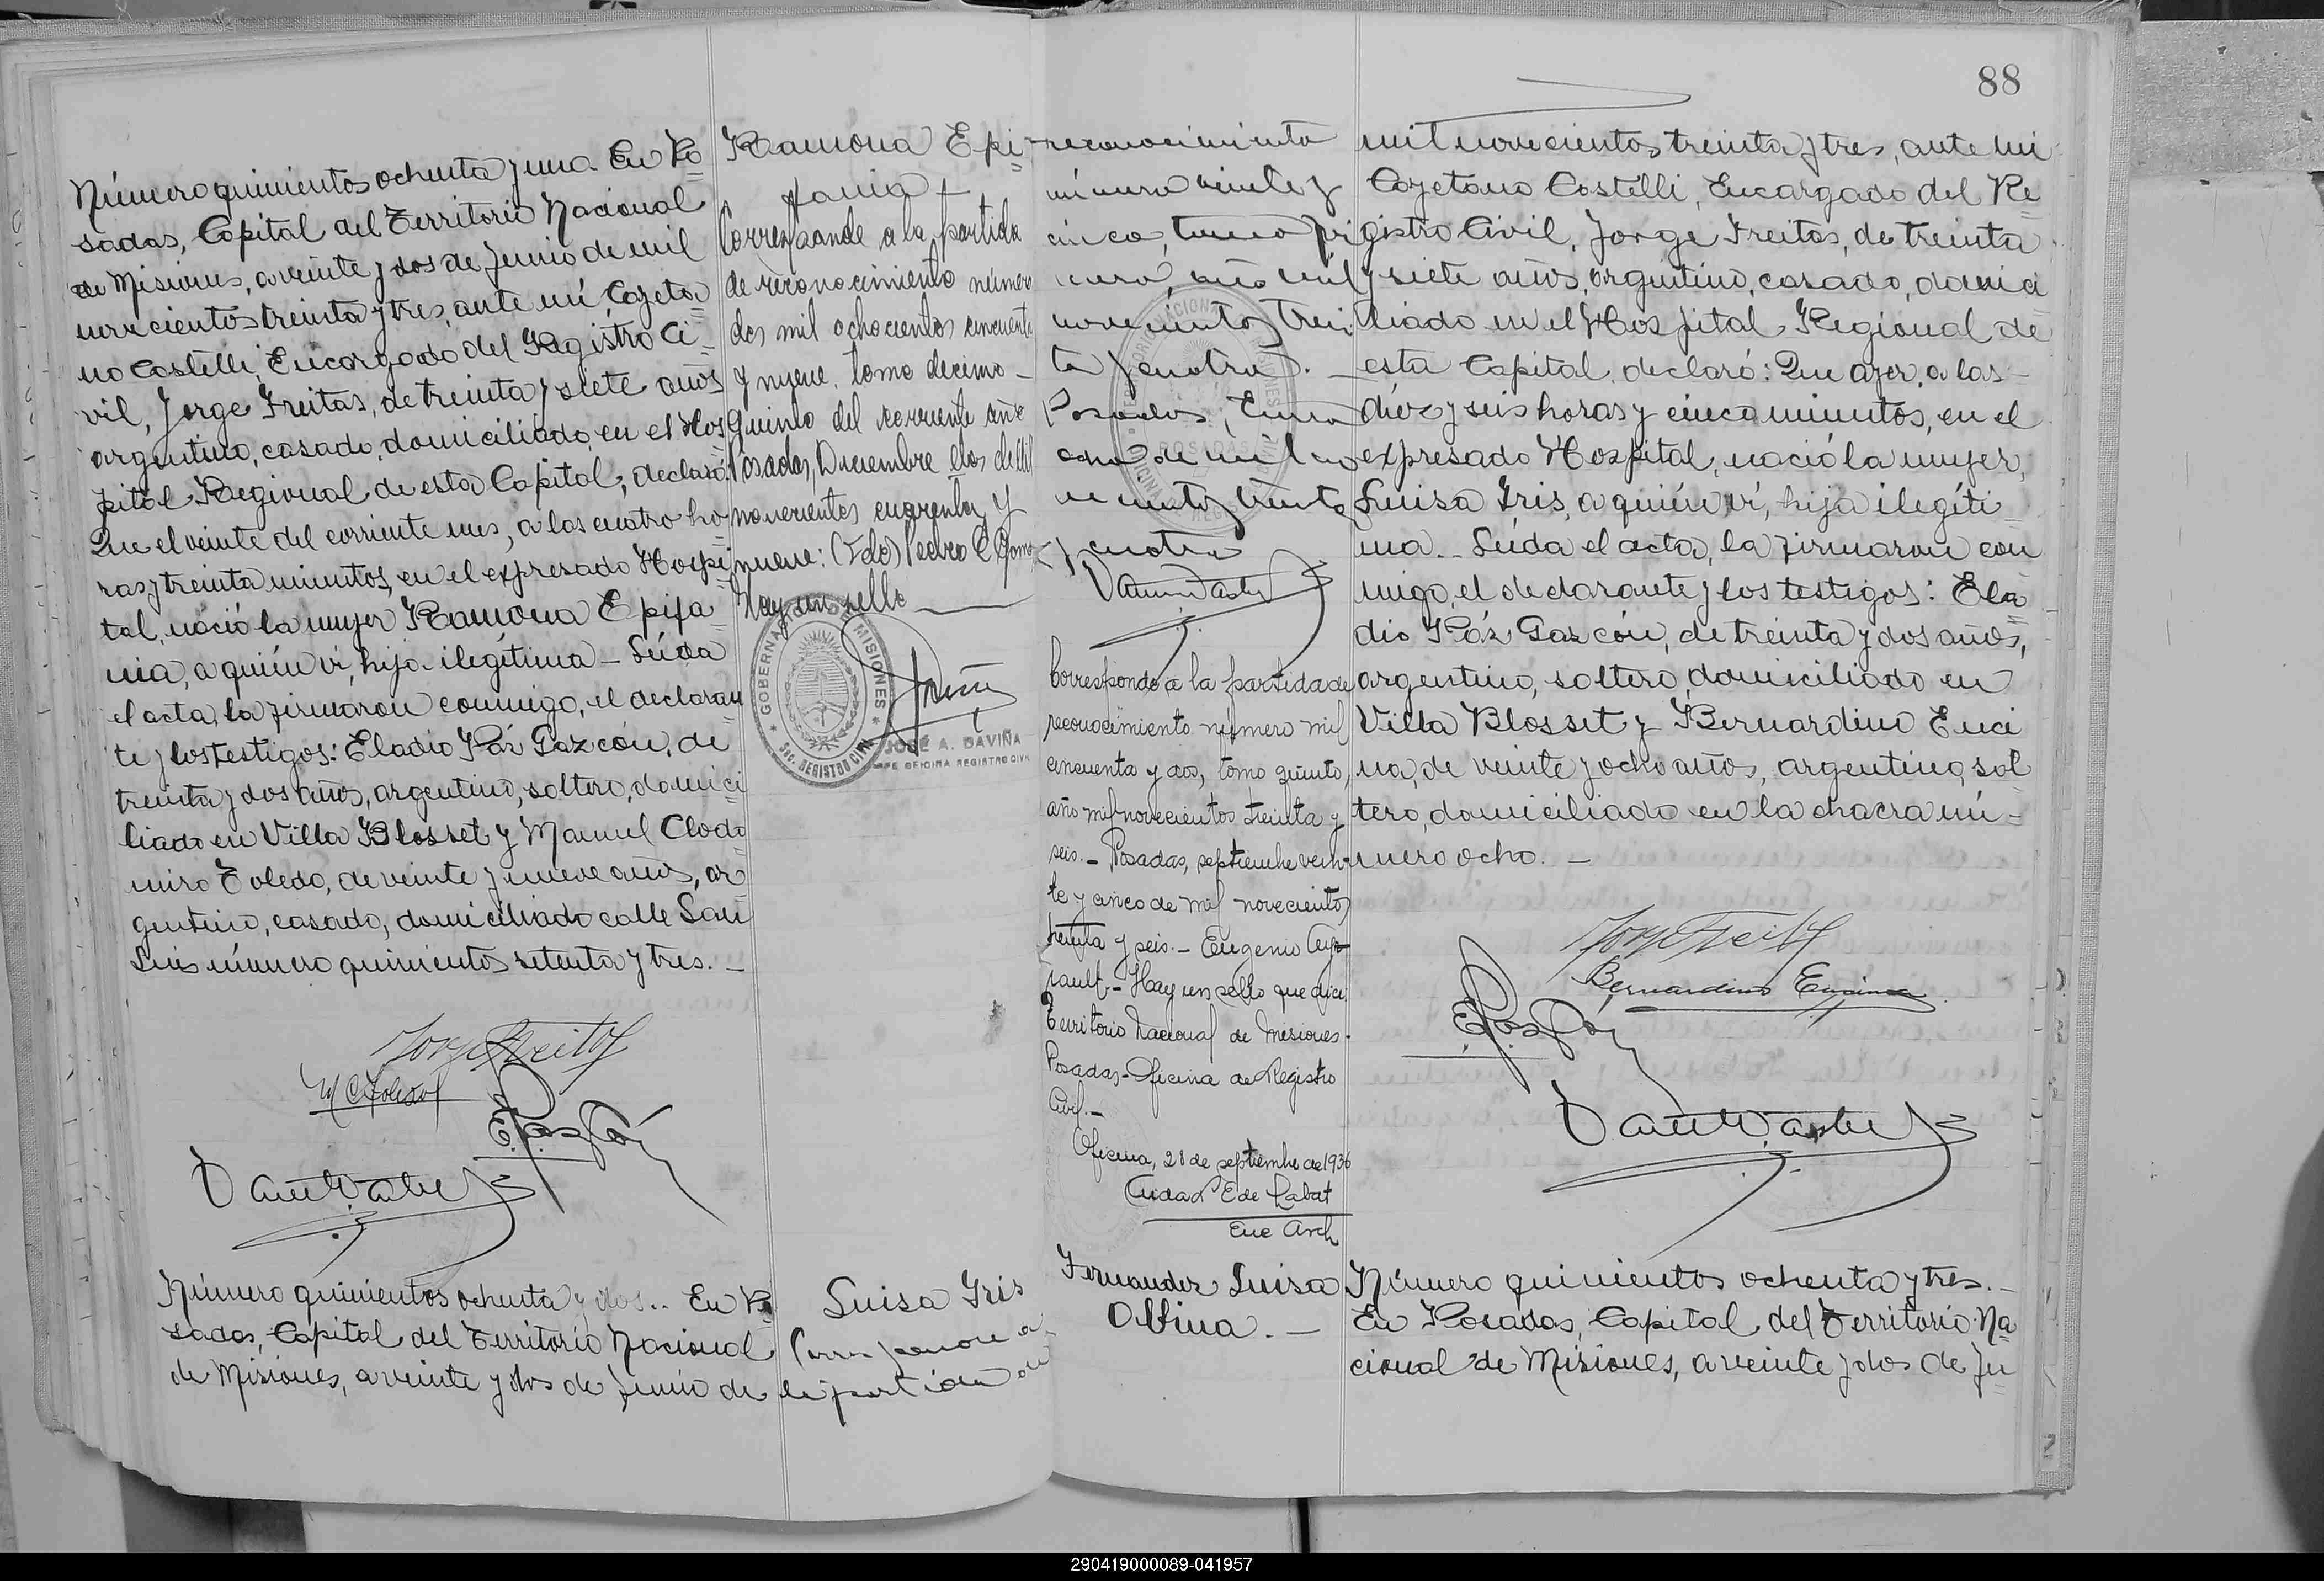 Número quinientos ochenta y uno. En Po
sadas, Capital del Territorio Nacional
de Misiones, a veinte y dos de Junio de mil
novecientos treinta y tres, ante mí Cayeta
no Costelli, Encargado del Registro Ci
vil, Jorge Freitas, de treinta y siete años
argentino, casado, domiciliado en el Hos
pital Regional de esta Capital, declaró:
Que el veinte del corriente mes, a las cuatro ho
ras y treinta minutos, en el expresado Hospi
tal, nació la mujer Ramona Epifa
nia, a quién ví, hija ilegítima - Leída
el acta, la firmaron conmigo, el declaran
te y los testigos: Eladio Páz Gazcón, de
treinta y dos años, argentino, soltero, domici
liado en Villa Blosset y Manuel Clodo
miro Toledo, de veinte y nueve años, ar
gentino, casado, domiciliado calle San
Luis número quinientos setenta y tres. -
Jorge Freitas
M C Toledo
Número quinientos ochenta y dos.. En Po
sadas, Capital del Territorio Nacional
de Misiones, a veinte y dos de Junio de
Ramona Epi
fania
Corresponde a la partida
de reconocimiento número
dos mil ochocientos cincuenta
y nueve, tomo decimo
quinto del corriente año
Posadas, Diciembre dos de Mil
novecientos cuarenta y
nueve: (Fdo) Pedro C. Gomez
Hay un sello
GOBERNACION MISIONES
SEC. REGISTRO CIVIL
JOSÉ A. DAVIÑA
JEFE OFICINA REGISTRO CIVIL
Luisa Iris
Corresponde a
la partida de
88
reconocimiento
número veinte y
cinco, tomo pri
mero, año mil
novecientos trein
ta y cuatro. -
Posadas, Enero
de mil no
vecientos treinta
y cuatro
POSADAS
Corresponde a la partida de
reconocimiento número mil
cincuenta y dos, tomo quinto,
año mil novecientos treinta y
seis. - Posadas, septiembre vein
te y cinco de mil novecientos
treinta y seis. - Eugenio
Hay un sello que dice
Territorio Nacional de Misiones.
Posadas - Oficina de Registro
Civil. -
Oficina, 28 de septiembre de 1936
E de Labat
Enc Arch
Fernandez Luisa
Albina. -
mil novecientos treinta y tres, ante mi
Cayetano Costelli, Encargado del Re
gistro Civil, Jorge Freitas, de treinta
y siete años, argentino, casado, domici
liado en el Hospital Regional de
esta Capital, declaró: Que ayer, a las
diez y seis horas y cinco minutos, en el
expresado Hospital, nació la mujer,
Luisa Iris, a quién ví, hija ilegíti
ma. - Leída el acta, la firmaron con
migo, el declarante y los testigos: Ela
dio Páz Gazcón, de treinta y dos años,
argentino, soltero, domiciliado en
Villa Blosset y Bernardino Enci
na, de veinte y ocho años, argentino, sol
tero, domiciliado en la chacra nú-
mero ocho. -
Jorge Freitas
Bernardino Encina
Número quinientos ochenta y tres. -
En Posadas, Capital del Territorio Na
cional de Misiones, a veinte y dos de Ju
290419000089-041957